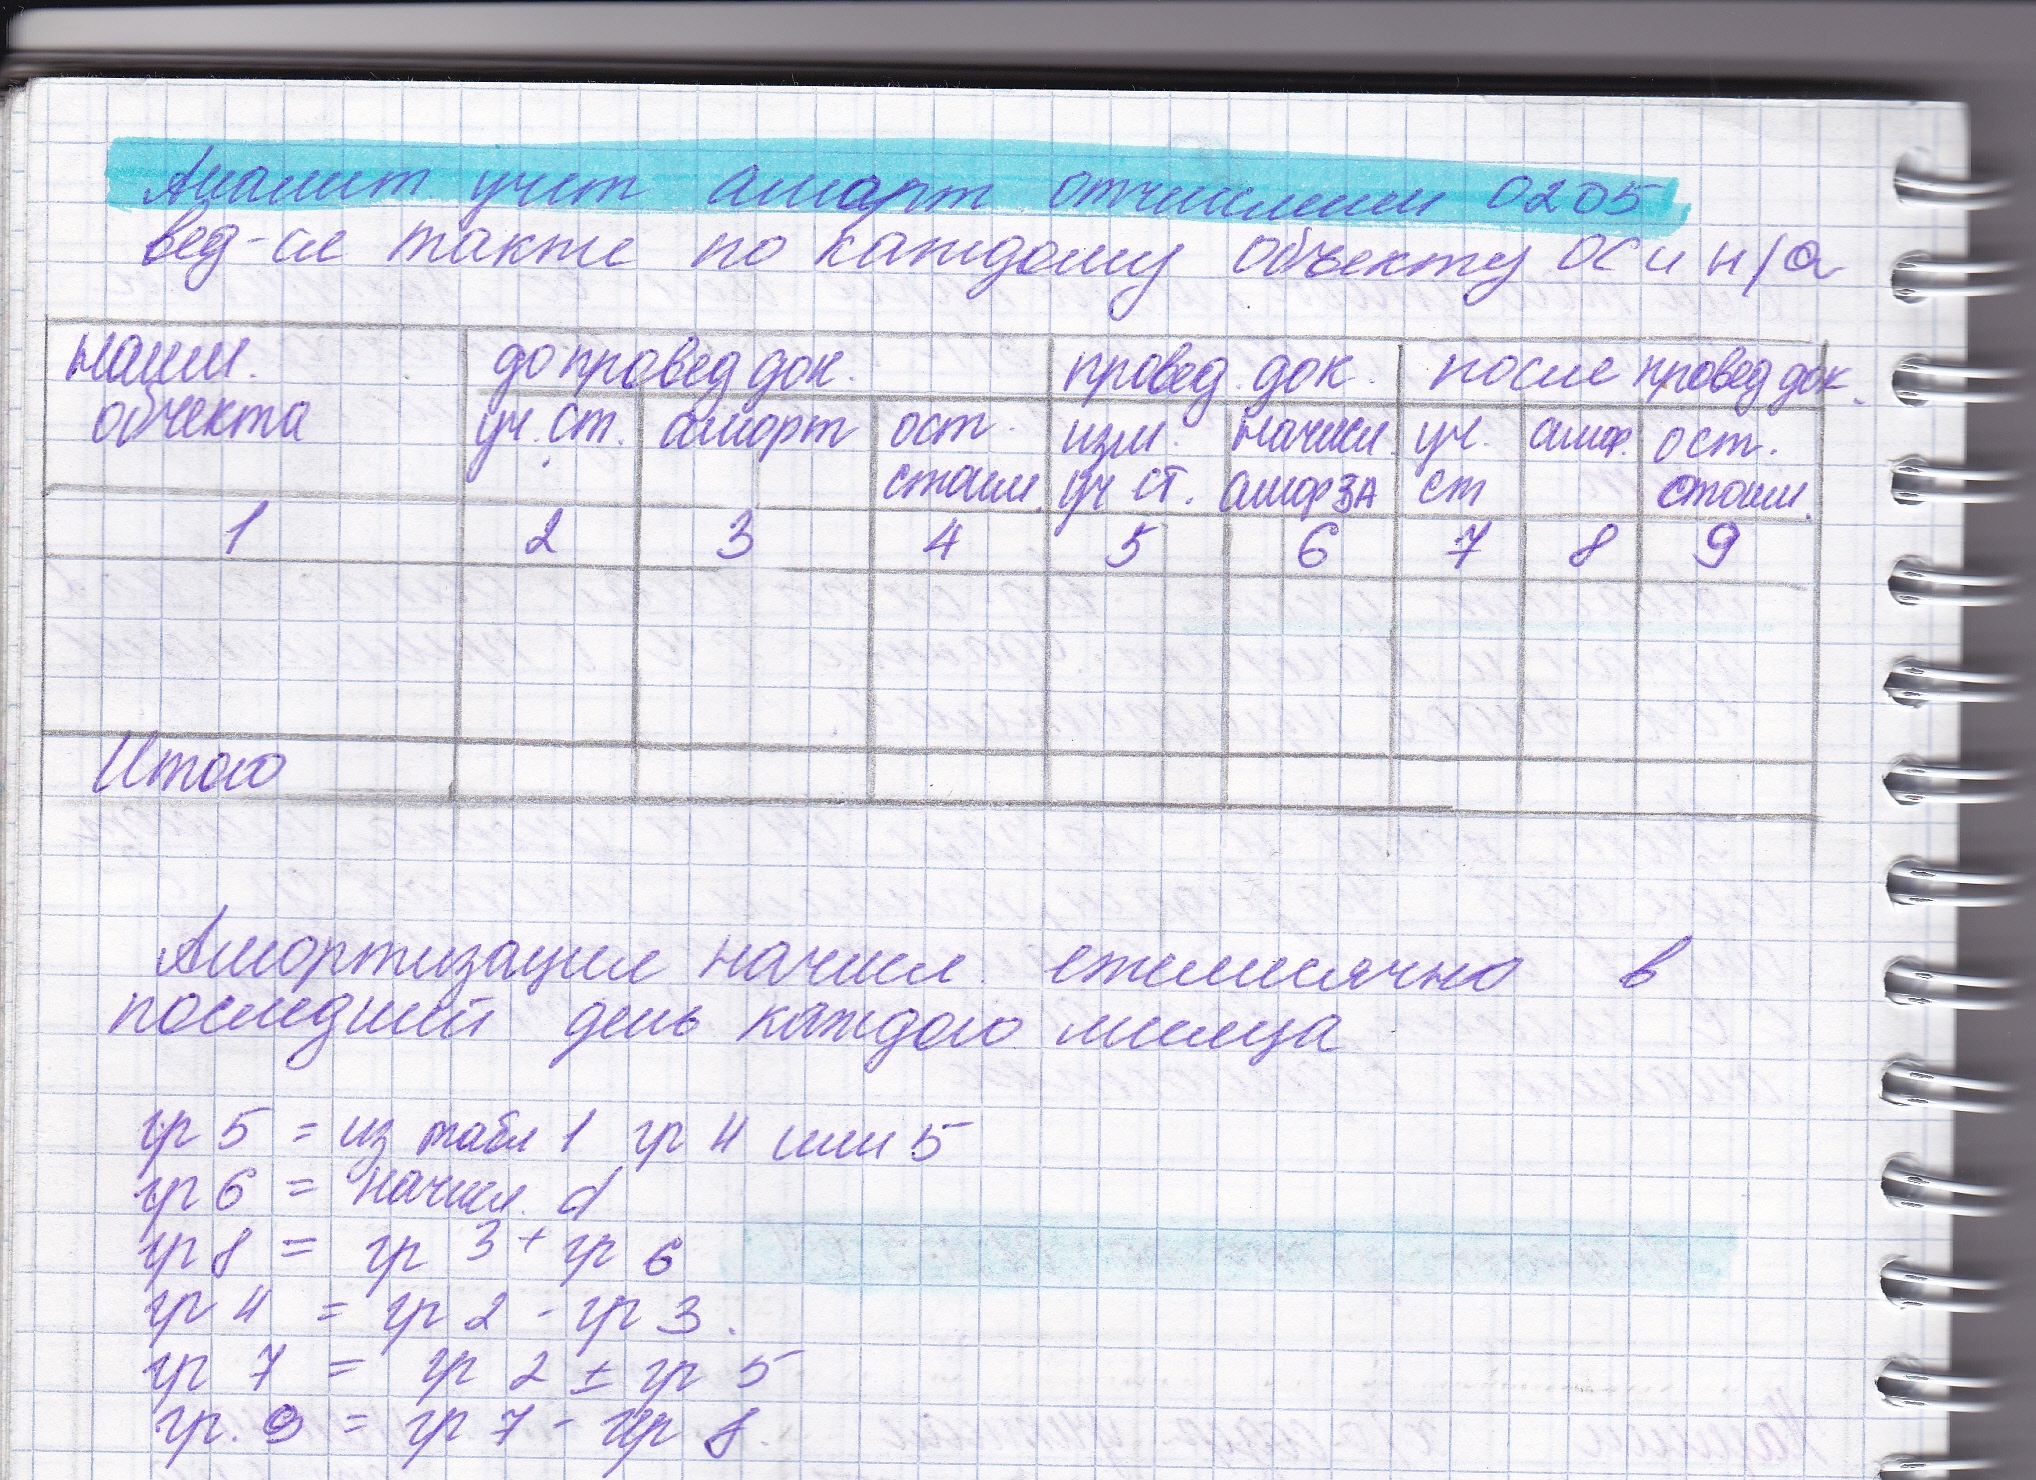 Аналит учет аморт отчислений 0205
вед-ся также по каждому объекту ОС и н/а
наим. до провед док. провед. док. после провед док.
объекта уч. ст. аморт ост. изм. начисл. уч. амор. ост.
стоим. уч ст. амор за ст стоим.
1 2 3 4 5 6 7 8 9
Итого
Амортизация начисл. ежемесячно в
последний день каждого месяца
гр 5 = из табл 1 гр 4 или 5
гр 6 = начисл. d
гр 8 = гр 3 + гр 6
гр 4 = гр 2 - гр 3.
гр 7 = гр 2 ± гр 5
гр. 9 = гр 7 - гр 8.